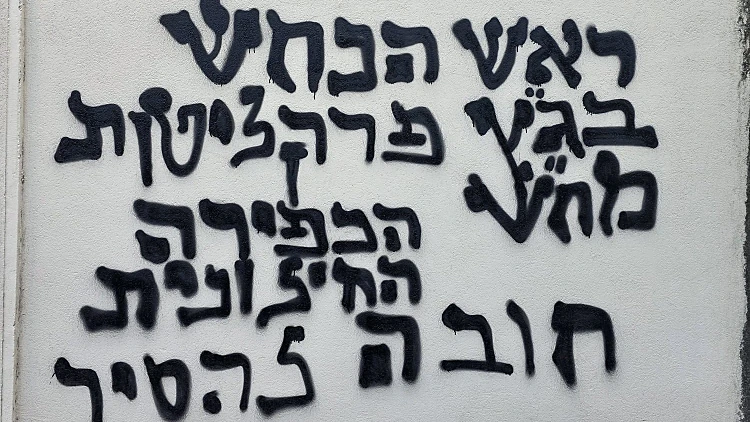 ראש הנחש
בג"ץ פרקליטות
מח"ש
הכפירה
החיצונית
חובה
להסיר